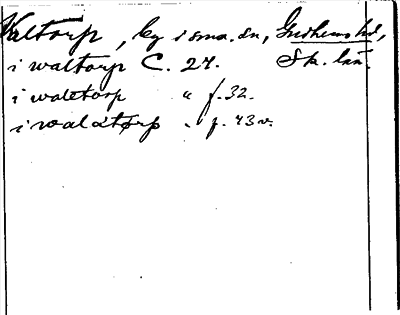 Valtorp, by i sma. sn, Gudhems hd,
i waltorp C. 27. Sk. län.
i waletorp " f. 32.
i walatorp " f. 43 v.